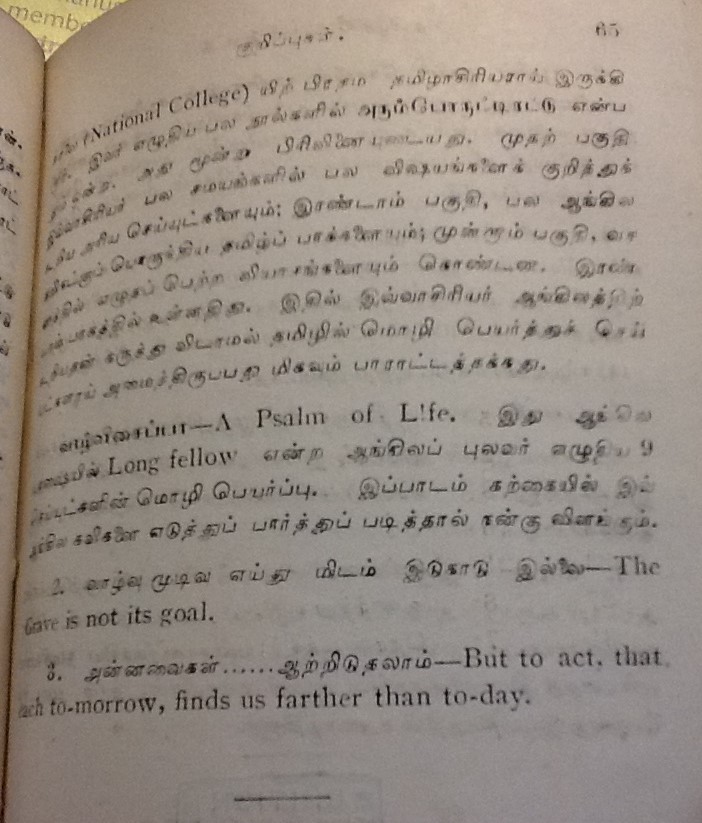 membe
குறிப்புகள். 65
(National College) யிற் பிரதம தமிழாசிரியராய் இருக்கி
இவர் எழுதிய பல நூல்களில் அரும்பொருட்டிரட்டு என்ப
அது மூன்று பிரிவினையுடையது. முதற் பகுதி
இவ்வாசிரியர் பல சமயங்களில் பல விஷயங்களைக் குறித்துக்
கூறிய அரிய செய்யுட்களையும்; இரண்டாம் பகுதி, பல ஆங்கில
தமிழ்ப் பாக்களையும்; மூன்றாம் பகுதி, வச
எழுதப் பெற்ற வியாசங்களையும் கொண்டன. இரண்
பாகத்தில் உள்ளதிது. இதில் இவ்வாசிரியர் ஆங்கிலத்திற்
கருத்து விடாமல் தமிழில் மொழி பெயர்த்துச் செய்
அமைத்திருப்பது மிகவும் பாராட்டத்தக்கது.
A Psalm of L!fe. இது ஆங்கில
Long fellow என்ற ஆங்கிலப் புலவர் எழுதிய 9
மொழி பெயர்ப்பு. இப்பாடம் கற்கையில் இவ்
ஆங்கில கவிகளை எடுத்துப் பார்த்துப் படித்தால் நன்கு விளங்கும்.
2. வாழ்வு முடிவு எய்து மிடம் இடுகாடு இல்லை—The
Grave is not its goal.
3. அன்னவைகள்......ஆற்றிடுதலாம்—But to act, that
each to-morrow, finds us farther than to-day.